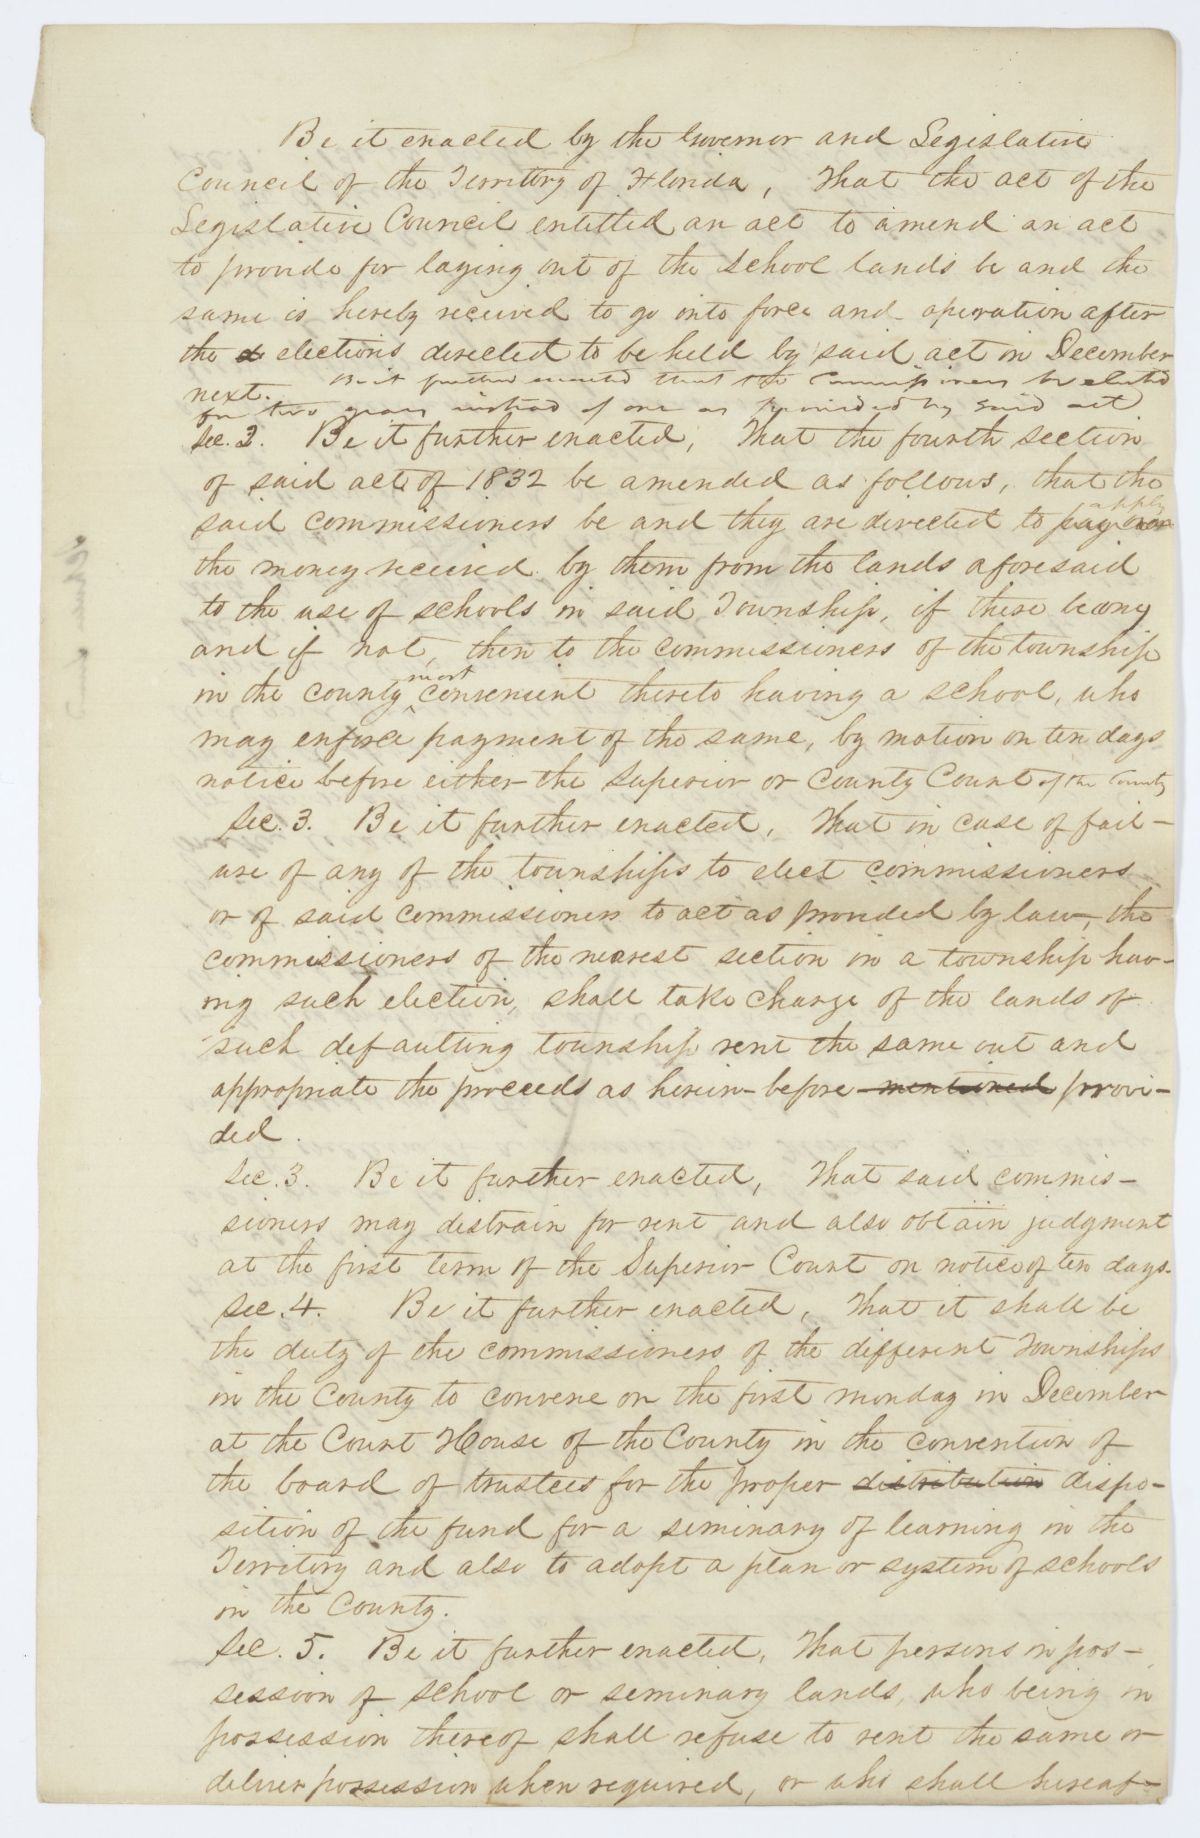 Be it enacted by the Governor and Legislative
Council of the Territory of Florida, That the act of the
Legislative Council entitled an act to amend an act
to provide for laying out of the School lands be and the
same is hereby received to go into force and operation after
the elections directed to be held by said act in December
next. Be it further enacted that the Commissioners be elected
for two years instead of one as provided by said act
Sec. 2. Be it further enacted, That the fourth section
of said act of 1832 be amended as follows, that the
said commissioners be and they are directed to pay over apply
the money received by them from the lands aforesaid
to the use of schools in said Township, if there be any
and if not, then to the commissioners of the township
in the county most convenient thereto having a school, who
may enforce payment of the same, by motion on ten days
notice before either the Superior or County Court of the County
Sec. 3. Be it further enacted, That in case of fail-
ure of any of the townships to elect commissioners
or of said commissioners to act as provided by law, the
commissioners of the nearest section in a township hav-
ing such election, shall take charge of the lands of
such defaulting township rent the same out and
appropriate the proceeds as herein-before mentioned provi-
ded.
Sec. 3. Be it further enacted, That said commis-
sioners may distrain for rent and also obtain judgment
at the first term of the Superior Court on notice of ten days.
Sec. 4. Be it further enacted, That it shall be
the duty of the commissioners of the different Townships
in the County to convene on the first monday in December
at the Court House of the County in the convention of
the board of trustees for the proper distribution dispo-
sition of the fund for a seminary of learning in the
Territory and also to adopt a plan or system of schools
in the County.
Sec. 5. Be it further enacted, That persons in pos-
session of school or seminary lands, who being in
possession thereof shall refuse to rent the same or
deliver possession when required, or who shall hereaf-